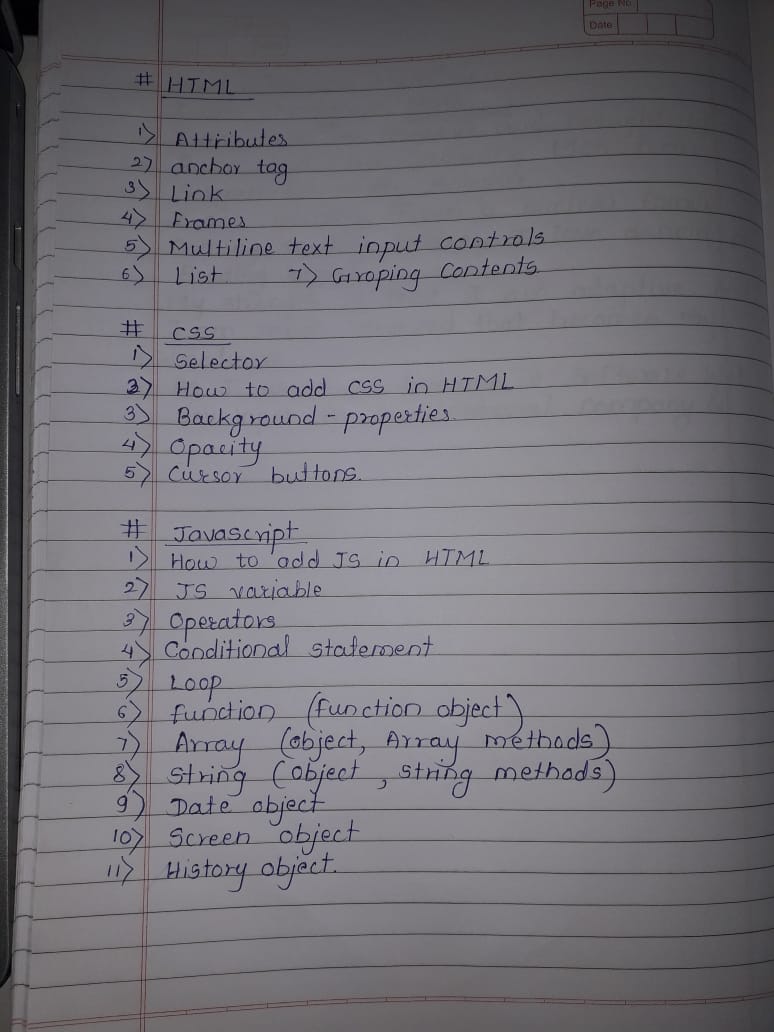 Page No
Date
# HTML
1) Attributes
2) anchor tag
3) Link
4) Frames
5) Multiline text input controls
6) List 7) Groping Contents
# CSS
1) Selector
2) How to add CSS in HTML
3) Background - properties
4) Opacity
5) Cursor buttons.
# Javascript
1) How to add JS in HTML
2) JS variable
3) Operators
4) Conditional statement
5) Loop
6) function (function object)
7) Array (object, Array methods)
8) String (object, string methods)
9) Date object
10) Screen object
11) History object.